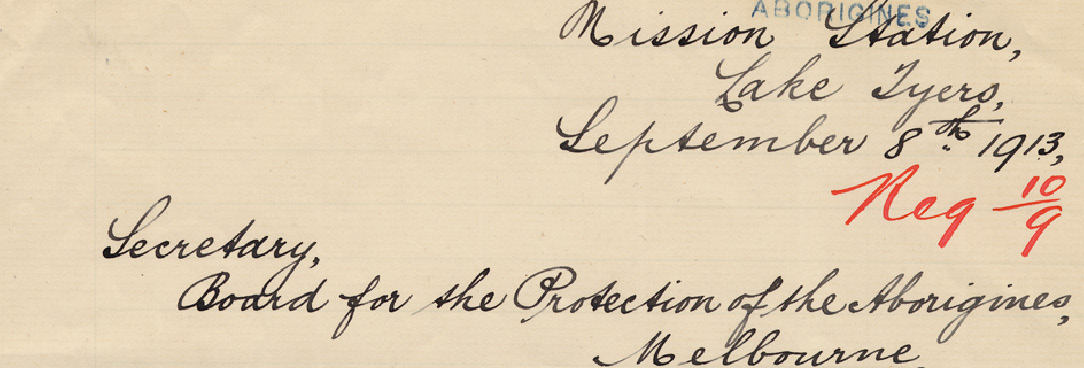 ABORIGINES
Mission Station,
Lake Tyers,
September 8th. 1913,
Reg 10/9
Secretary,
Board for the Protection of the Aborigines,
Melbourne,